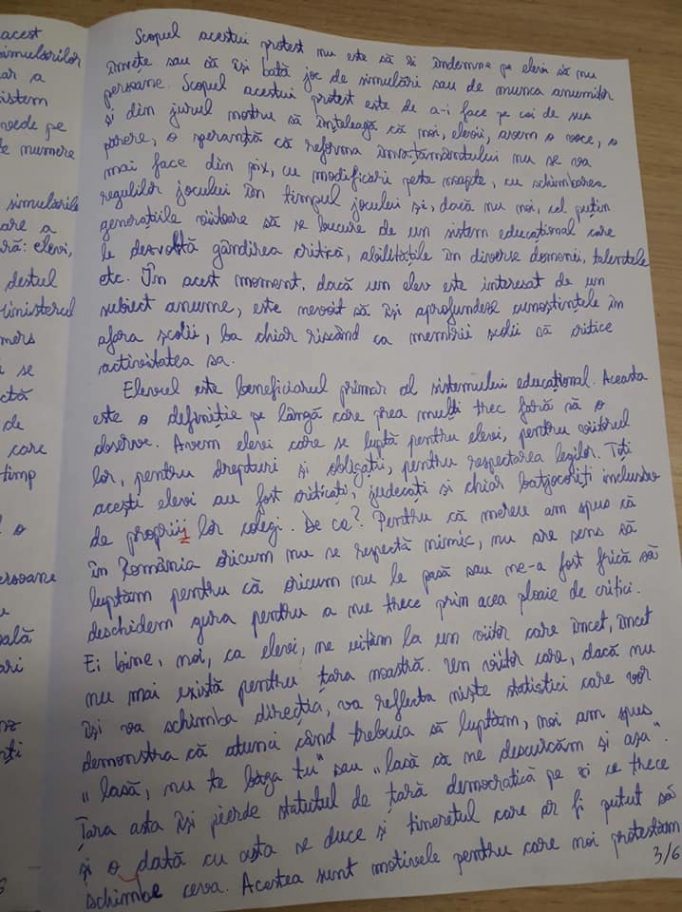 acest
simulărilor
ar a
sistem
vede pe
de numere
simulările
are a
ară: elevi,
destul
Ministerul
mers
se
ctă
de
care
timp
o
ersoane
u
oală
ari
nz
nți
Scopul acestui protest nu este să îi îndemne pe elevi să nu
învețe sau să își bată joc de simulări sau de munca anumitor
persoane. Scopul acestui protest este de a-i face pe cei de sus
și din jurul nostru să înțeleagă că noi, elevii, avem o voce, o
părere, o speranță că reforma învățământului nu se va
mai face din pix, cu modificări peste noapte, cu schimbarea
regulilor jocului în timpul jocului și, dacă nu noi, cel puțin
generațiile viitoare să se bucure de un sistem educațional care
le dezvoltă gândirea critică, abilitățile în diverse domenii, talentele
etc. În acest moment, dacă un elev este interesat de un
subiect anume, este nevoit să își aprofundeze cunoștințele în
afara școlii, ba chiar riscând ca membrii școlii să critice
activitatea sa.
Elevul este beneficiarul primar al sistemului educațional. Aceasta
este o definiție pe lângă care prea mulți trec fără să o
observe. Avem elevi care se luptă pentru elevi, pentru viitorul
lor, pentru drepturi și obligații, pentru respectarea legilor. Toți
acești elevi au fost criticați, judecați și chiar batjocoriți inclusiv
de propriii lor colegi. De ce? Pentru că mereu am spus că
în România oricum nu se repectă nimic, nu are sens să
luptăm pentru că oricum nu le pasă sau ne-a fost frică să
deschidem gura pentru a nu trece prin acea ploaie de critici.
Ei bine, noi, ca elevi, ne uităm la un viitor care încet, încet
nu mai există pentru țara noastră. Un viitor care, dacă nu
își va schimba direcția, va reflecta niște statistici care vor
demonstra că atunci când trebuia să luptăm, noi am spus
„lasă, nu te băga tu” sau „lasă că ne descurcăm și așa”.
Țara asta își pierde statutul de țară democratică pe zi ce trece
și o dată cu asta se duce și tineretul care ar fi putut să
schimbe ceva. Acestea sunt motivele pentru care noi protestăm
3/6